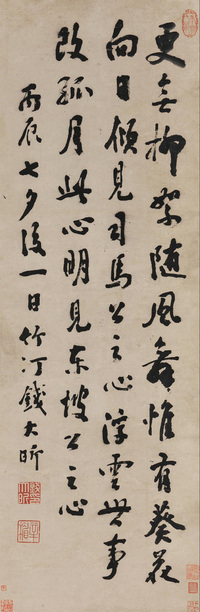 更無柳絮随風舞惟有葵花
向日傾見司馬公之心浮雲世事
改孤月此心明見東坡公之心
丙辰七夕後一日竹汀錢大昕